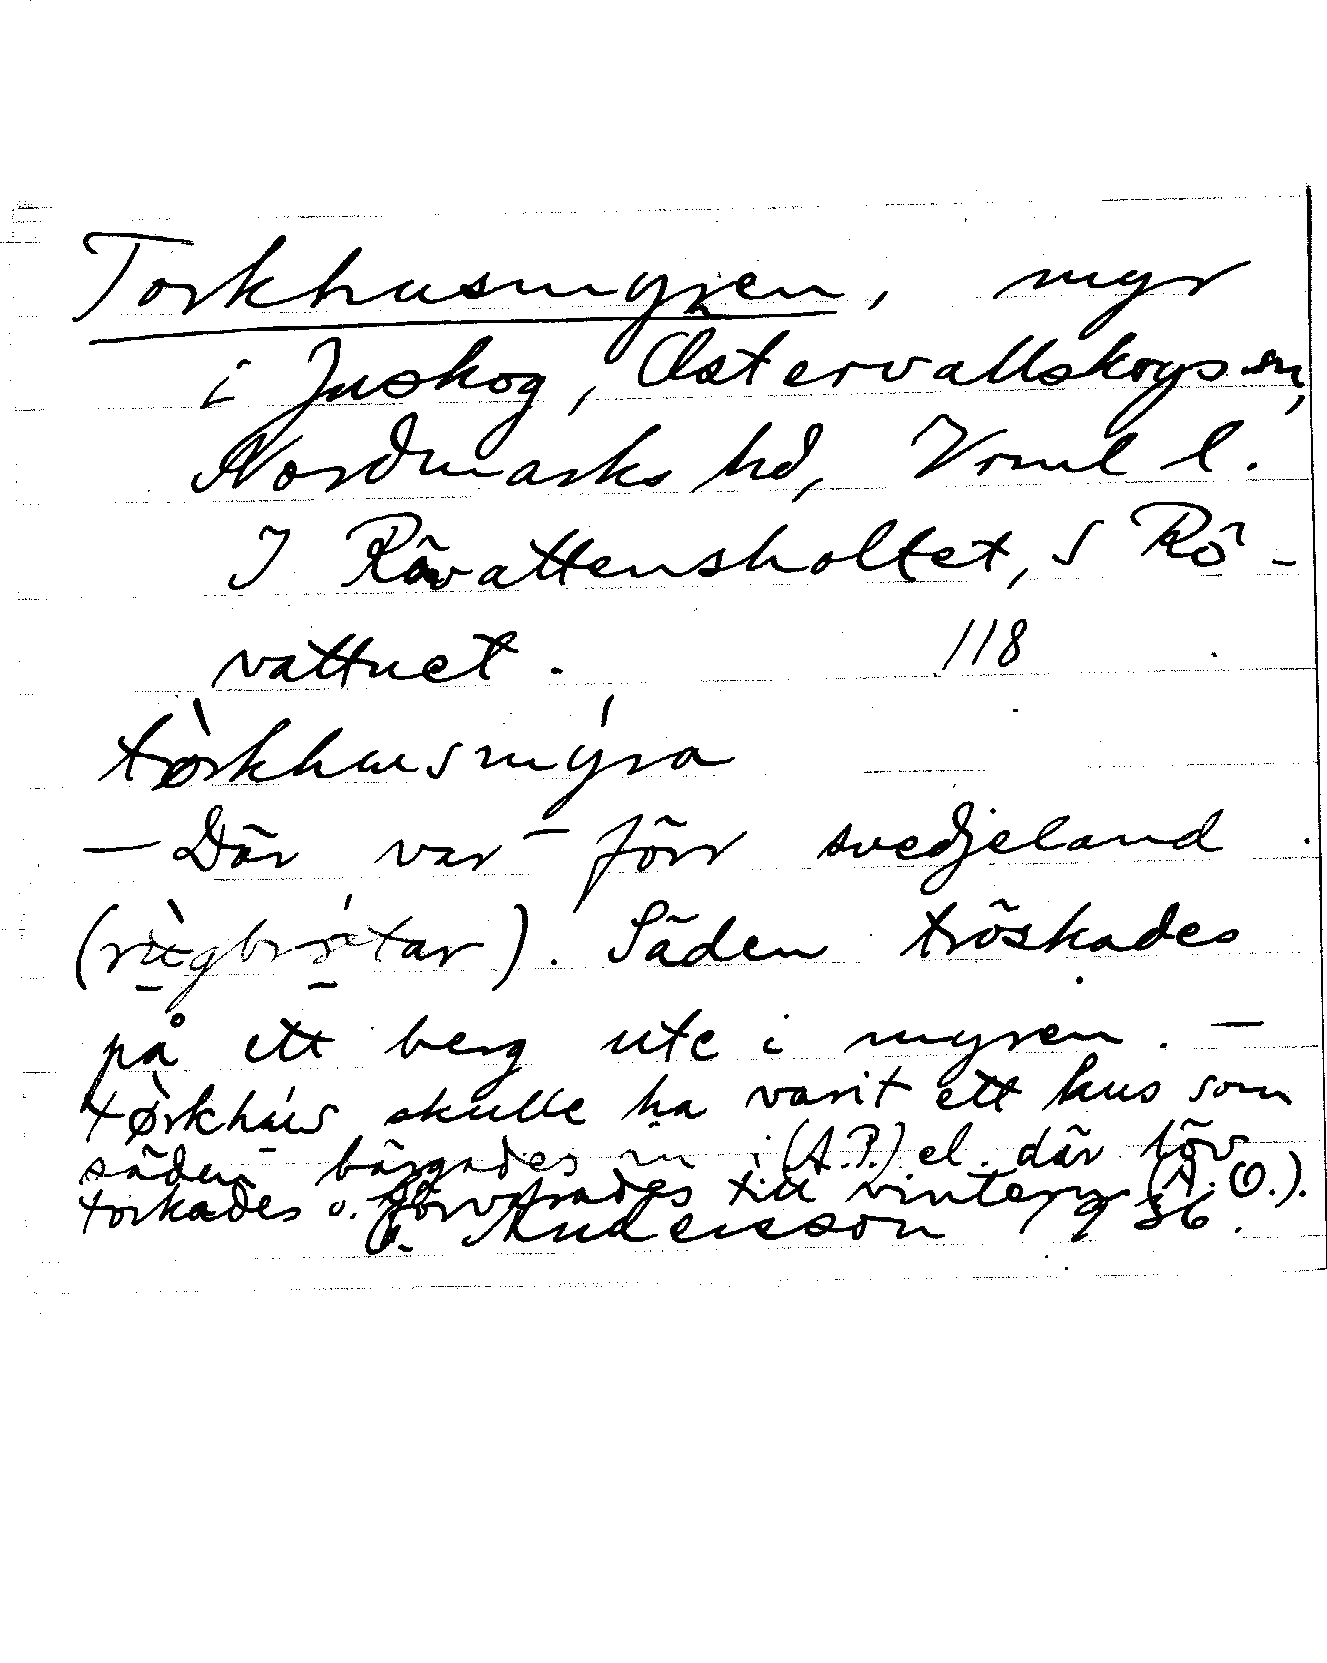 Torkhusmyren, myr
i Juskog, Östervallskogs sn,
Nordmarks hd, Vrml l.
I Rövattensholtet, S Rö-
vattnet. 118
tørkhusmyra
— Där var förr svedjeland
(rugbrøtar). Säden tröskades
på ett berg ute i myren. —
tørkhus skulle ha varit ett hus som
säden bärgades in i (A.P.) el. där löv
torkades o. förvarades till vintern (A.O.).
Andersson 1936.